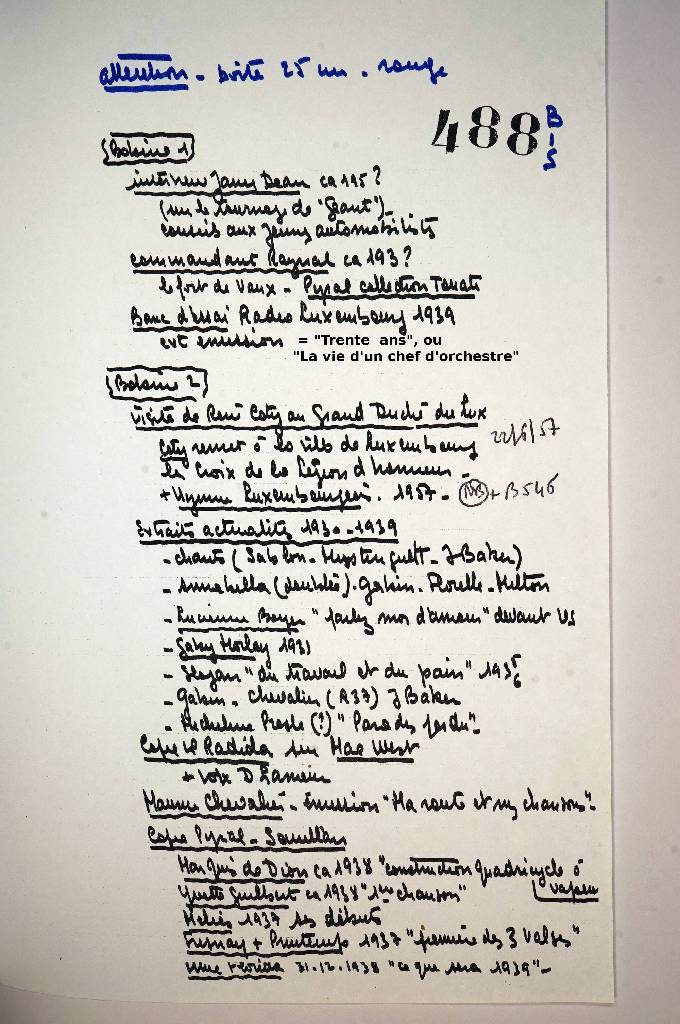 attention - boîte 25 cm - rouge
488 BIS
Bobine 1
interview James Dean ca 195?
(sur le tournage de "Géant")-
conseils aux jeunes automobilists
commandant Raynal ca 193?
le fort de Vaux - Pyral collection Tanati
Banc d'essai Radio Luxembourg 1939
ext emission = "Trente ans", ou
"La vie d'un chef d'orchestre"
Bobine 2
visite de René Coty au Grand Duché du Lux
Coty remet à la ville de Luxembourg 22/6/57
la Croix de la Légion d'honneur -
+ Hymne Luxembourgeois. 1957 - + B546
Extraits actualités 1930-1939
- chants (Sablon - Mistinguett - J Baker)
- Annabella (doublée) - Gabin - Florelle - Milton
- Lucienne Boyer "parlez moi d'amour" devant
- Gaby Morlay 1931
- Slogan "du travail et du pain" 1935 6
- Gabin - Chevalier (A37) J Baker
- Micheline Presle (?) "Paradis perdu"-
Copie Radiola sur Mae West
+ voix D Lamour
Maurice Chevalier - Emission "Ma route et mes chansons"-
Copie Pyral -
Marquis de Dion ca 1938 "construction quadricycle à
vapeur
Yvette Guilbert ca 1938 "1ère chanson"
Méliès 1937 ses débuts
Fresnay + Printemps 1937 "première des 3 valses"
Mme 31-12-1938 "ce que sera 1939"-